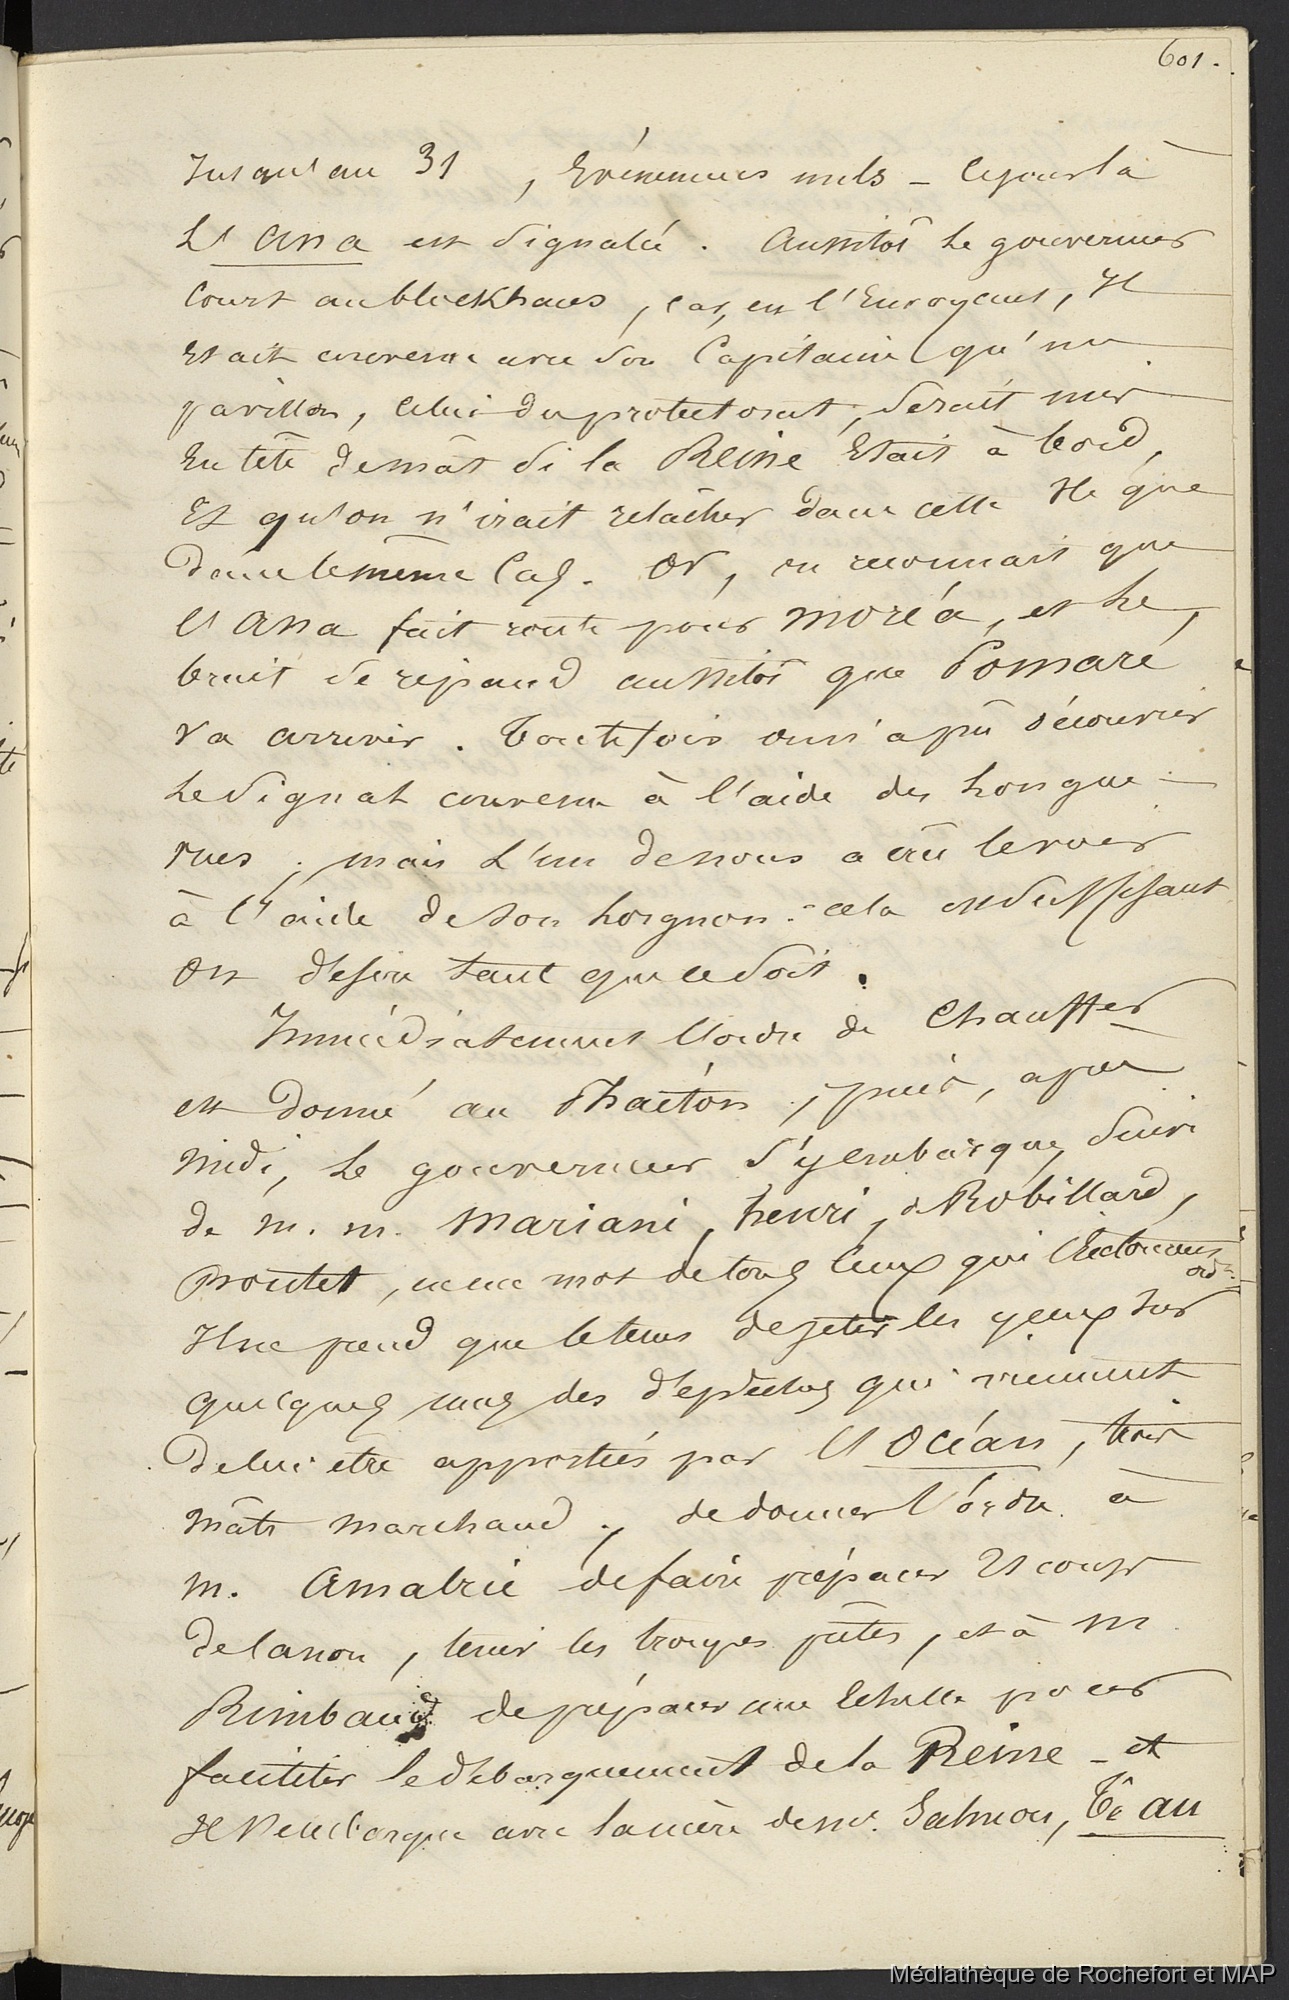 601.
Jusqu'au 31, Evénemens nuls _ Ce jour là
L'Ana est signalée. Aussitôt le gouverneur
Court au blockhaus, car, en l'Envoyant, Il
Etait convenu avec son Capitaine qu'un
pavillon, celui du protectorat, serait mis
En tête de mât si la Reine Etait à bord,
Et qu'on n'irait relâcher dans cette Ile que
dans le même Cas. Or, on reconnait que
l'Ana fait route pour Moréa, et le
bruit se répand aussitôt que Pomaré
va arriver. Toutefois on n'a pû découvrir
le signal convenu à l'aide des longue
vues; mais l'un de nous a crû le voir
à l'aide de son lorgnon. cela est suffisant
On désire tant que ce soit.
Immédiatement l'ordre de Chauffer
est donné au Phaéton; puis, après
midi, le gouverneur s'y embarque, suivi
de M. M. Mariani, henri, Robillard,
Proutet, de tous ceux qui
Il ne prend que le tems de jeter les yeux sur
quelques unes des dépêches qui viennent
de lui être apportées par l'Océan, trois
mâts marchand; de donner l'ordre à
M. Amalric de faire préparer 21 coups
de canon, tenir les troupes prêtes, et à M
Rimbaud de préparer une Echelle pour
faciliter le débarquement de la Reine _ et
Il s'embarque avec la mère de Mr. Salmon,
Médiathèque de Rochefort et MAP